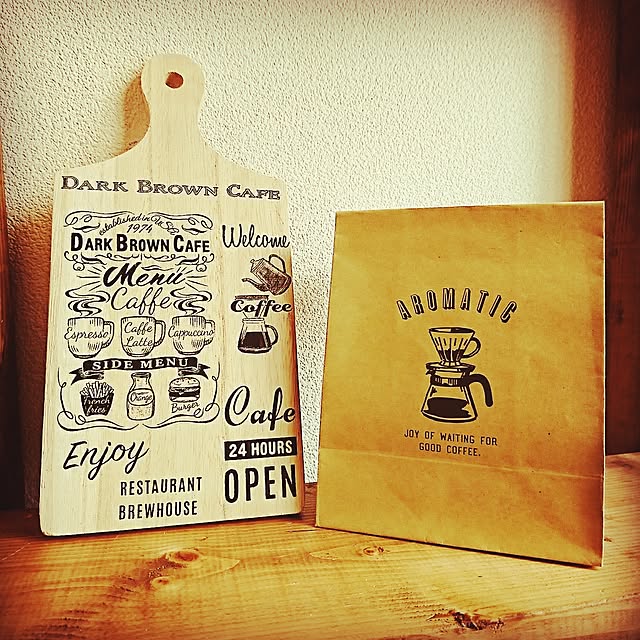 DARK BROWN CAFE
established in
1974
DARK BROWN CAFE
Menu
Caffé
Espresso
Caffe
Latte
Cappuccino
SIDE MENU
French
fries
Orange
Burger
Enjoy
RESTAURANT
BREWHOUSE
Welcome
Coffee
Cafe
24 HOURS
OPEN
AROMATIC
JOY OF WAITING FOR
GOOD COFFEE.